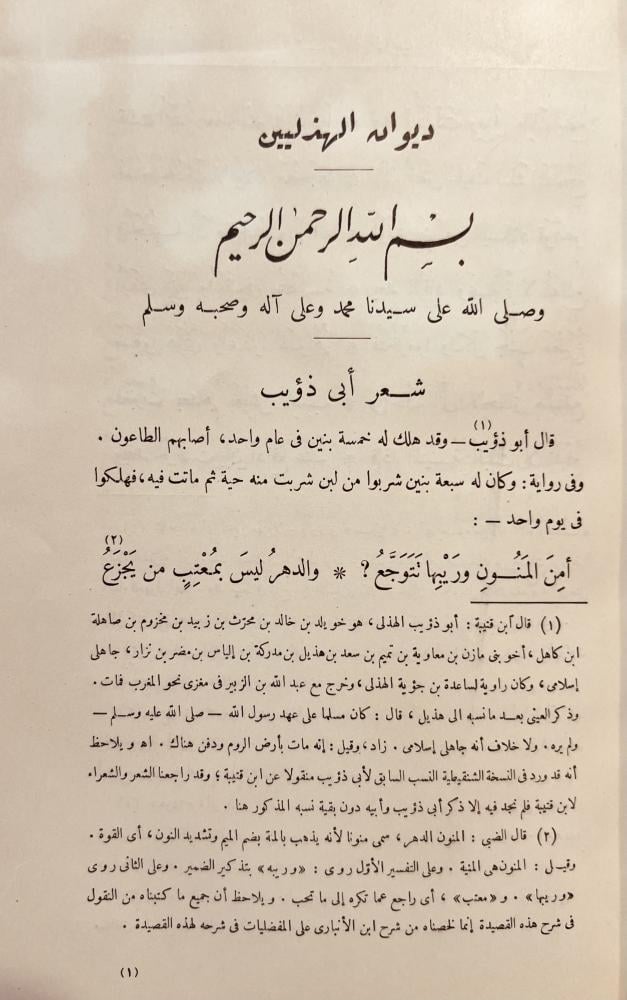 ديوان الهذليين
بِسْمِ اللهِ الرحمن الرحيم
وصلى الله على سيدنا محمد وعلى آله وصحبه وسلم
شعر أبى ذؤيب
قال أبو ذؤيب (١) — وقد هلك له خمسة بنين فى عام واحد، أصابهم الطاعون .
وفى رواية : وكان له سبعة بنين شربوا من لبن شربت منه حية ثم ماتت فيه، فهلكوا
فى يوم واحد — :
أمِنَ المَنُونِ ورَيْبِها تَتَوَجَّعُ ؟ * والدهرُ ليسَ بمُعْتِبٍ من يَجْزَعُ (٢)
(١) قال ابن قتيبة : أبو ذؤيب الهذلى، هو خويلد بن خالد بن محرّث بن زبيد بن مخزوم بن صاهلة
ابن كاهل، أخو بنى مازن بن معاوية بن تميم بن سعد بن هذيل بن مدركة بن إلياس بن مضر بن نزار، جاهلى
إسلامى، وكان راوية لساعدة بن جؤية الهذلى، وخرج مع عبد الله بن الزبير فى مغزى نحو المغرب فمات .
وذكر العينى بعد ما نسبه الى هذيل، قال : كان مسلما على عهد رسول الله — صلى الله عليه وسلم —
ولم يره . ولا خلاف أنه جاهلى إسلامى . زاد، وقيل : إنه مات بأرض الروم ودفن هناك . اهـ ويلاحظ
أنه قد ورد فى النسخة الشنقيطية النسب السابق لأبى ذؤيب منقولا عن ابن قتيبة ؛ وقد راجعنا الشعر والشعراء
لابن قتيبة فلم نجد فيه إلا ذكر أبى ذؤيب وأبيه دون بقية نسبه المذكور هنا .
(٢) قال الضبى : المنون الدهر، سمى منونا لأنه يذهب بالمنة بضم الميم وتشديد النون، أى القوة .
وقيل : المنون هى المنية . وعلى التفسير الأوّل روى : «وريبه» بتذكير الضمير . وعلى الثانى روى
«وريبها» . و «معتب» ، أى راجع عما تكره إلى ما تحب . ويلاحظ أن جميع ما كتبناه من النقول
فى شرح هذه القصيدة إنما لخصناه من شرح ابن الأنبارى على المفضليات فى شرحه لهذه القصيدة .
(١)